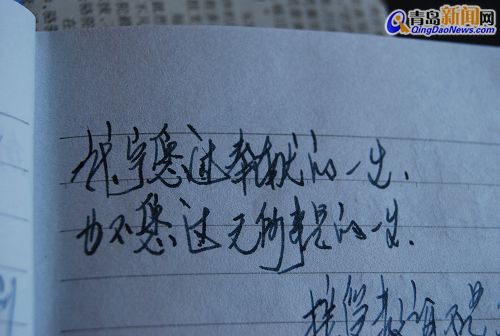 青岛新闻网
QingDaoNews.com
我宁愿过奉献的一生.
也不愿过无所事的一生.